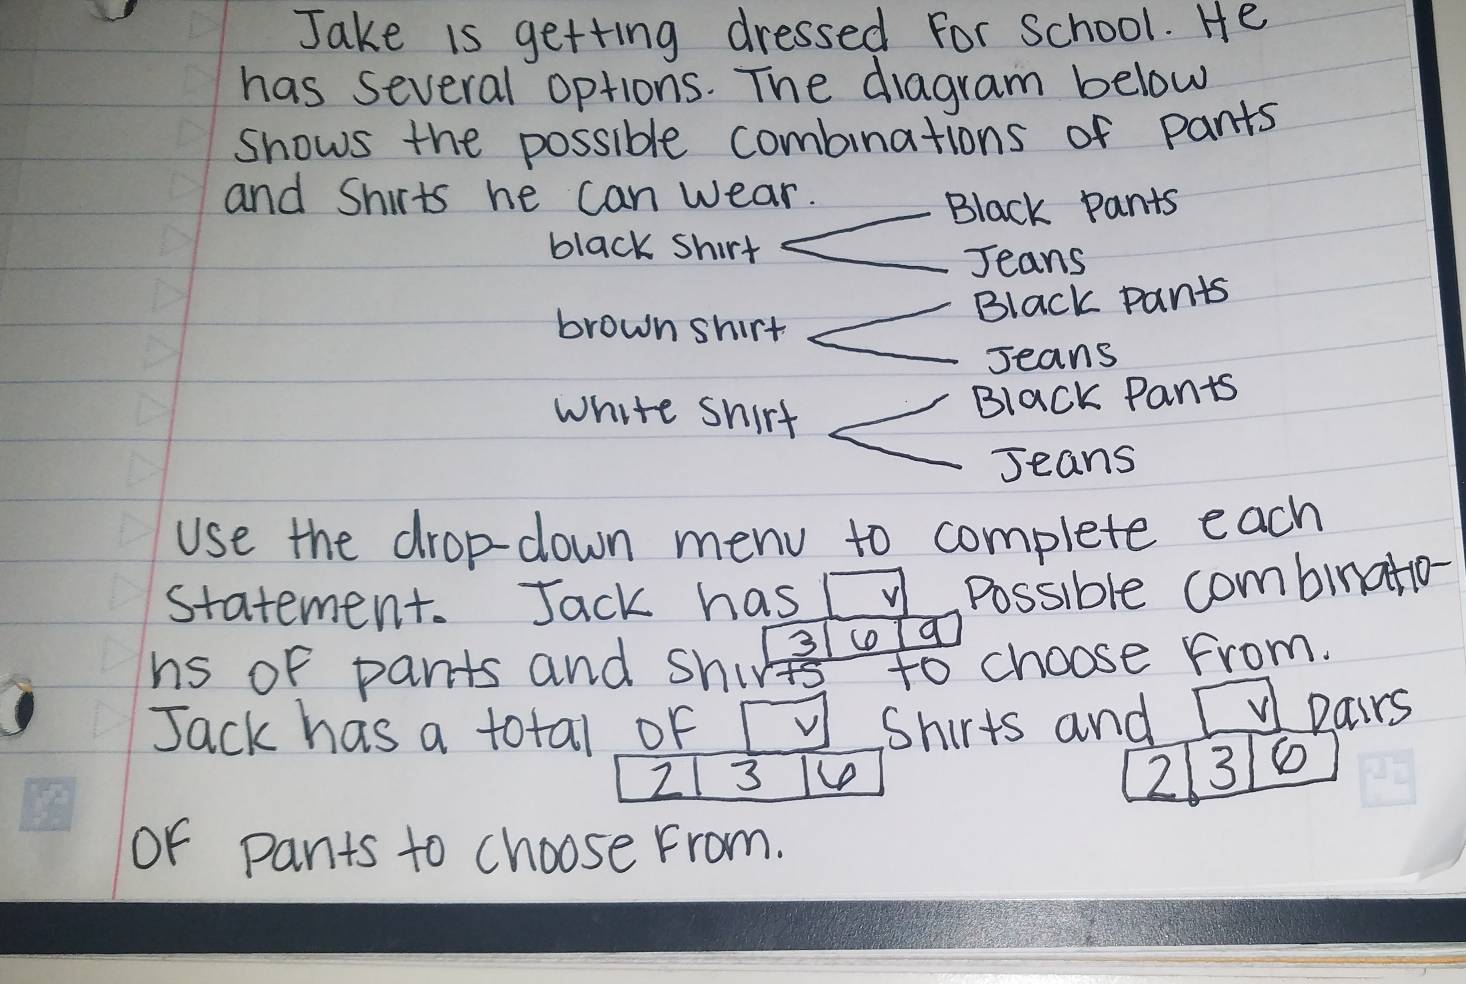 Jake is getting dressed For School. He
has several options. The diagram below
shows the possible combinations of pants
and Shirts he can wear.
black shirt
Black pants
Jeans
brown shirt
Black pants
Jeans
white shirt
Black Pants
Jeans
Use the drop-down menu to complete each
statement. Jack has v Possible combinatio-
3 6 9
ns of pants and shirts to choose From.
Jack has a total of v Shirts and v pairs
2 3 6
2 3 6
of pants to choose From.